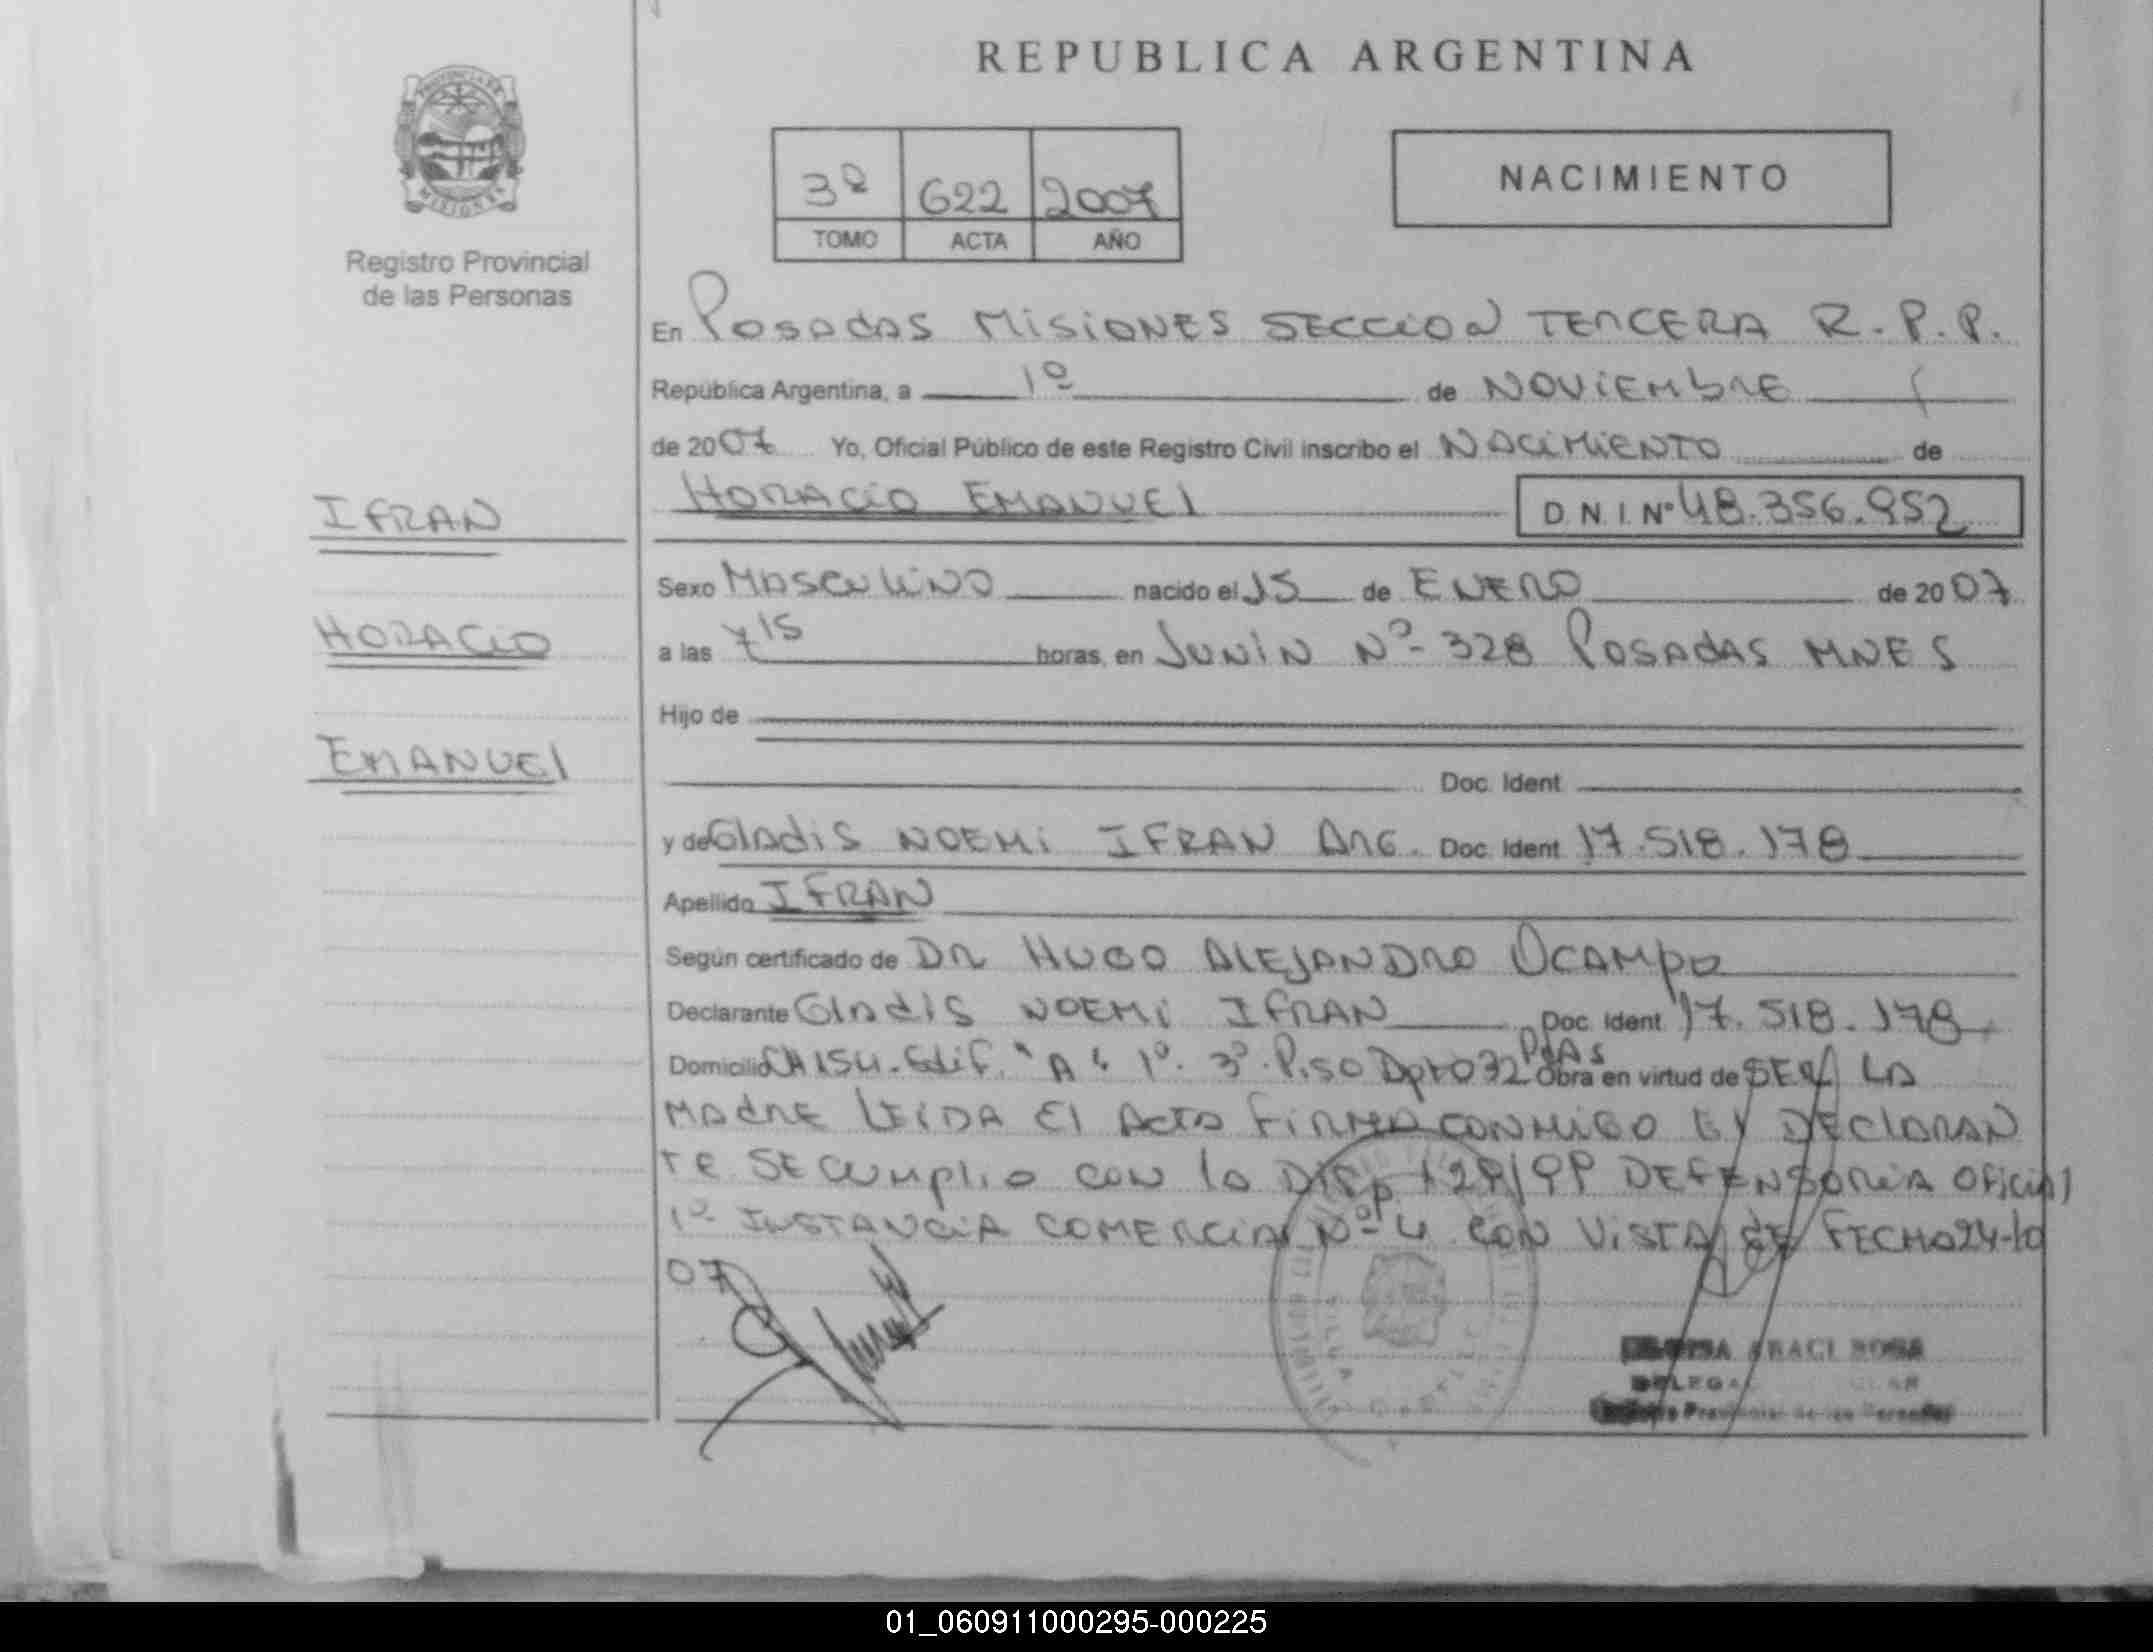 REPUBLICA ARGENTINA
PROVINCIA DE
MISIONES
Registro Provincial
de las Personas
3º 622 2007
TOMO ACTA AÑO
NACIMIENTO
En POSADAS MISIONES SECCION TERCERA R.P.P.
República Argentina, a 1º de NOVIEMBRE
de 2007 Yo, Oficial Público de este Registro Civil inscribo el NACIMIENTO de
HORACIO EMANUEL D.N.I. Nº 48.356.952
IFRAN
HORACIO
EMANUEL
Sexo MASCULINO nacido el 15 de ENERO de 2007
a las 7 15 horas, en JUNIN Nº 328 POSADAS MNES
Hijo de
Doc. Ident
y de GLADIS NOEMI IFRAN ARG. Doc. Ident 17.518.178
Apellido IFRAN
Según certificado de DR HUGO ALEJANDRO OCAMPO
Declarante GLADIS NOEMI IFRAN Doc. Ident 17.518.178
Domicilio CH 154. Edif. "A" 1º. 3º. Piso Dpto 32 Pdas Obra en virtud de SER LA
MADRE LEIDA El Acta FIRMA CONMIGO El DECLARAN
TE SE Cumplio con la DISP 129/99 DEFENSORIA Oficial
1º INSTANCIA COMERCIAL Nº 4 CON VISTA DE FECHA 24-10
07
ARACI ROSA
Registro Provincial de las Personas
01_060911000295-000225